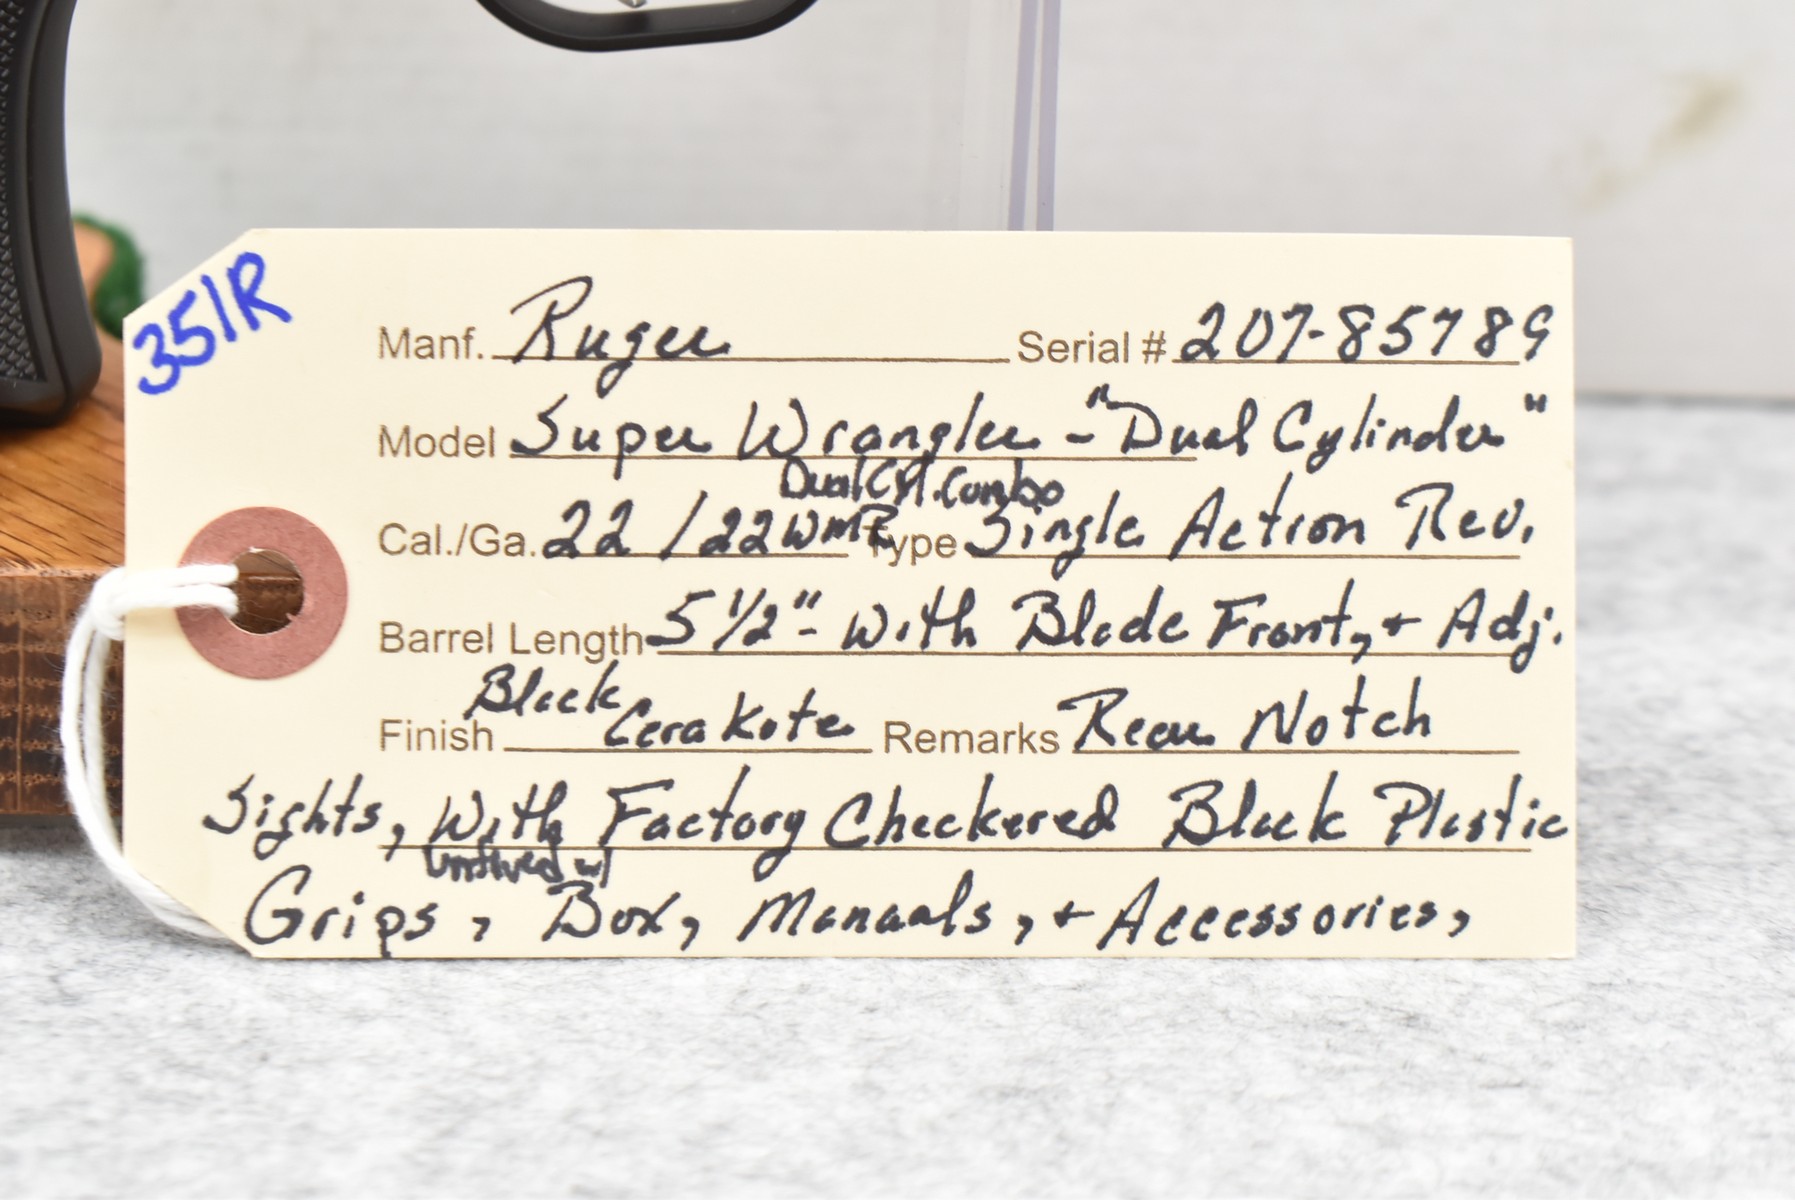 351R
Manf. Ruger Serial # 207-85789
Model Super Wrangler - "Dual Cylinder"
Dual Cyl. Combo
Cal./Ga. 22 / 22 WMR Type Single Action Rev.
Barrel Length 5 1/2" - with Blade Front, + Adj.
Black
Finish CeraKote Remarks Rear Notch
Sights, With Factory Checkered Black Plastic
Unfired w/
Grips, Box, Manuals, + Accessories,